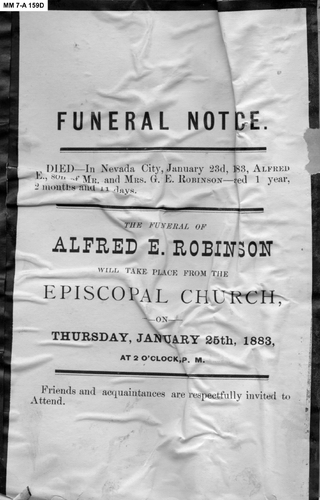 MM 7-A 159D
FUNERAL NOTCE.
DIED—In Nevada City, January 23d, 183, ALFRED
E., son of MR. and MRS. G. E. ROBINSON—ed 1 year,
2 months and 11 days.
THE FUNERAL OF
ALFRED E. ROBINSON
WILL TAKE PLACE FROM THE
EPISCOPAL CHURCH,
—ON—
THURSDAY, JANUARY 25th, 1883,
AT 2 O'CLOCK, P. M.
Friends and acquaintances are respectfully invited to
Attend.